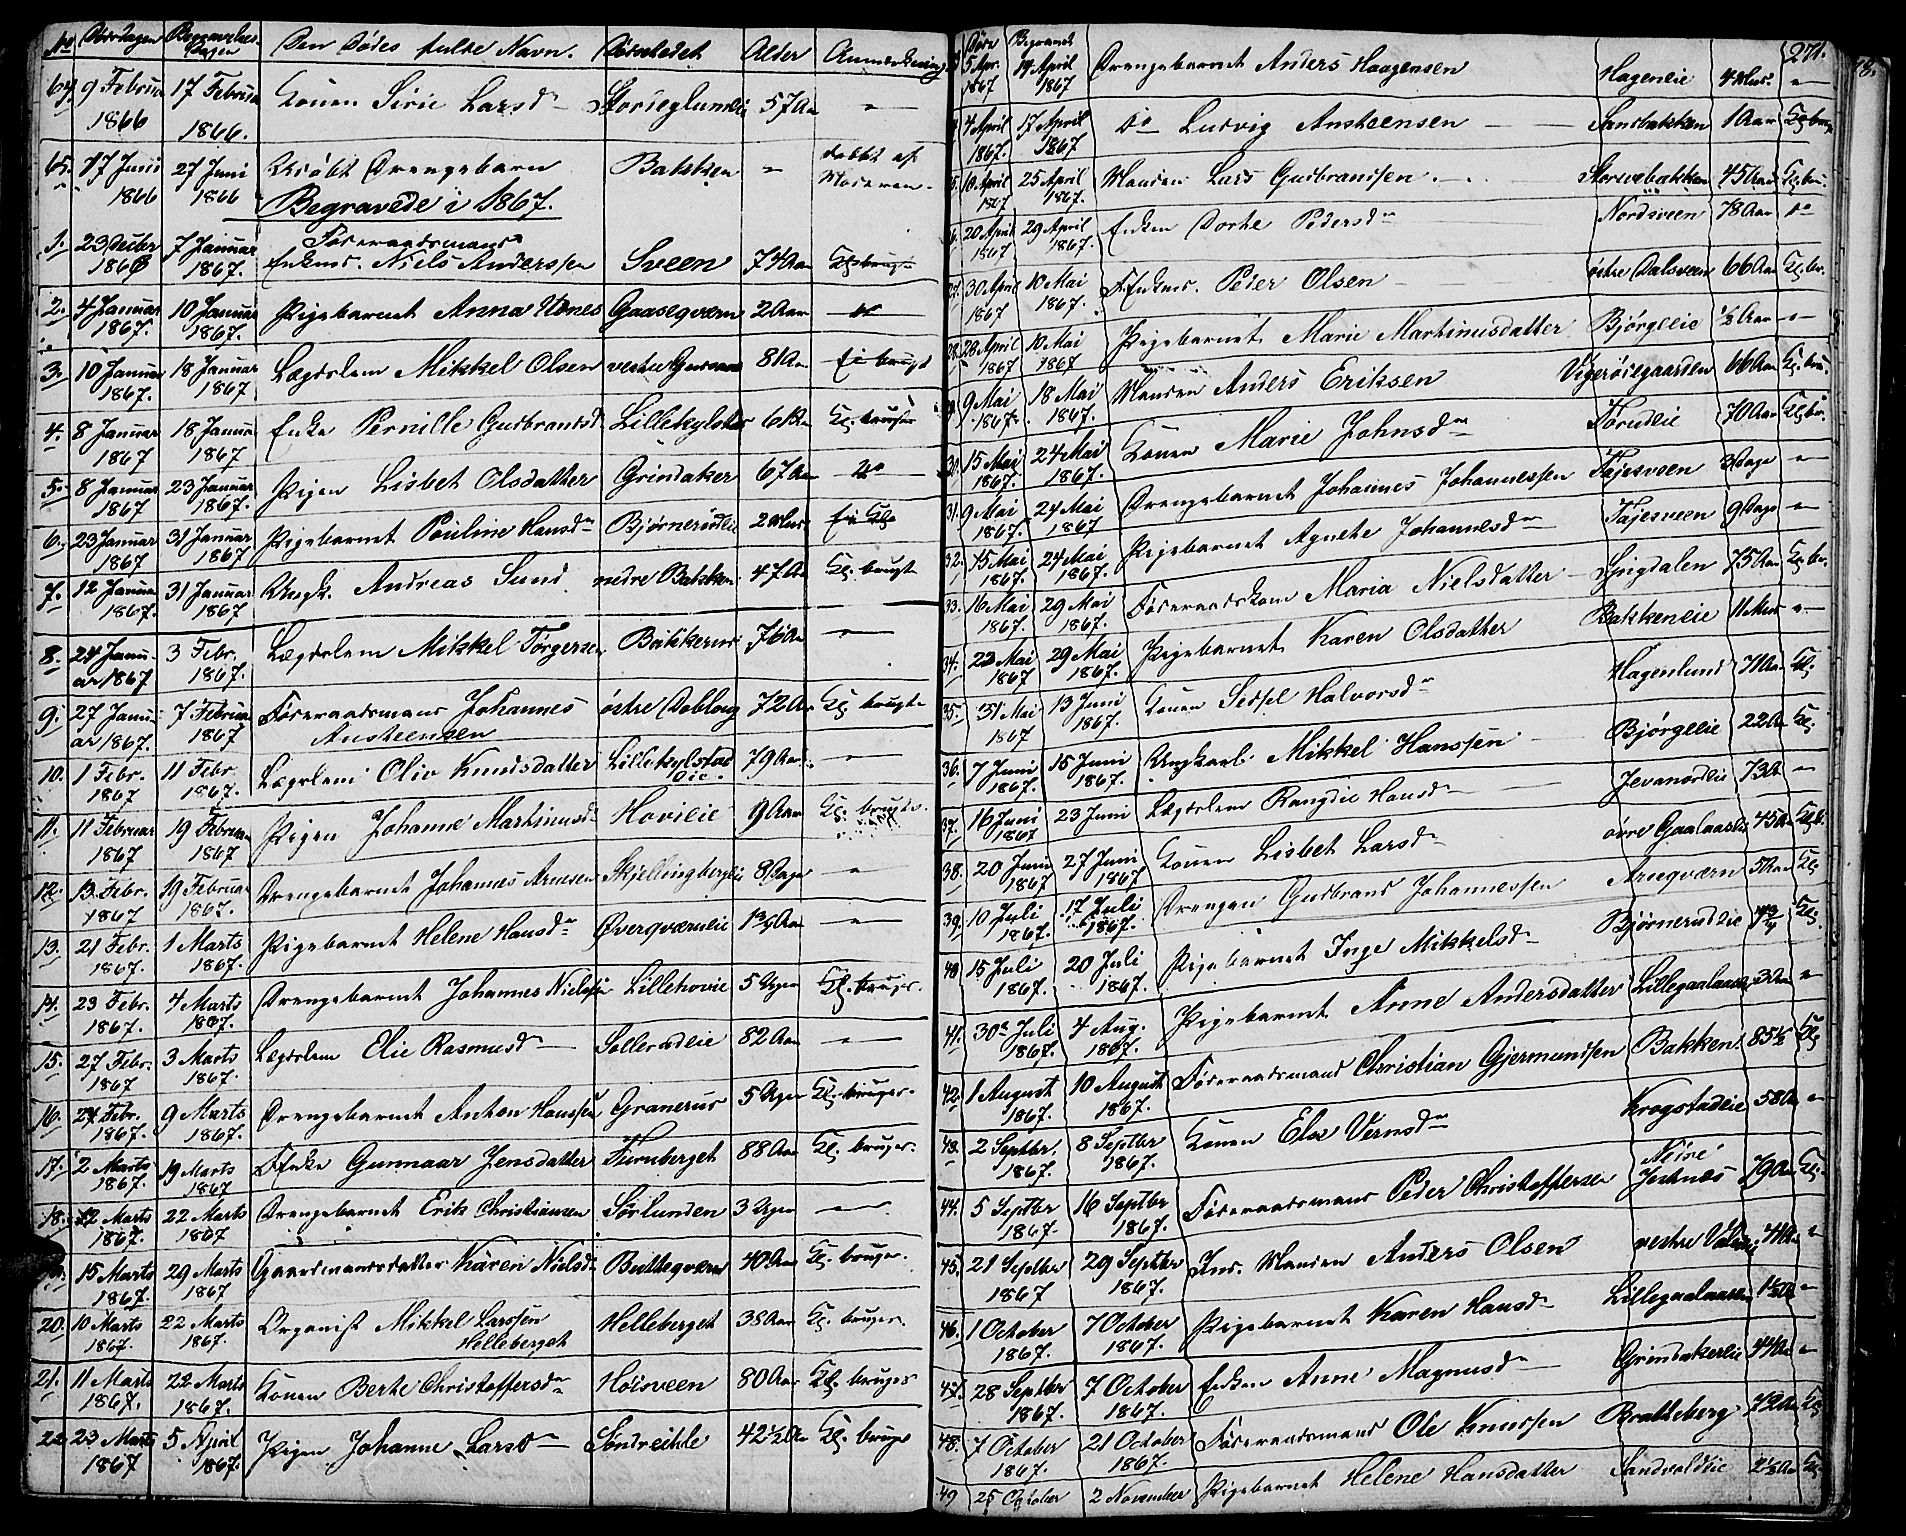 No Dødsdagen Begravelses-Dagen Den Dødes fulde Navn. Dødsstedet Alder Anmærkning
64 9 Februar 1866 17 Februar 1866. Konen Sirie Larsd 57 Aar "
65. 17 Juni 1866 27 Juni 1866 Udøbt Drengebarn Bakken " døbt af Moderen.
Begravede i 1867.
1. 23 Decbr 1866 7 Januar 1867. Føderaadsmand Enkmd. Niels Anderssen Sveen 74 Aar Kl. brugt
2. 4 Januar 1867. 10 Januar 1867. Pigebarnet Anna Gaaseqværn 2 Aar
3. 10 Januar 1867. 18 Januar 1867 Lægdslem Mikkel Olsen 81 Aar Ei brugt
4. 8 Januar 1867 18 Januar 1867 Enke Pernille Gudbrandsd Kl.
5. 8 Januar 1867 23 Januar 1867. Pigen Lisbet Olsdatter Grindaker 67 Aar Do
6. 23 Januar 1867 31 Januar 1867 Pigebarnet Pouline Hansd Bjørnerudlie Ei Kl.
7. 12 Januar 1867. 31 Januar 1867 Ungk. Andreas Sund nedre Bakken 47 Aar Kl. brugt
8. 24 Januar 1867 3 Febr. 1867. Lægdslem Mikkel Torgersen 76 Aar "
9. 27 Januar 1867. 7 Februar 1867 Føderaadsmand Johannes Ansteensen østre Dobloug 72 Aar Kl. brugt
10. 1 Febr. 1867 11 Febr 1867. Lægdslem Oliv Knudsdatter Lillekylstad Eie. 79 Aar "
11. 11 Februar 1867 19 Februar 1867 Pigen Johanne Martinusd Hovilie 9 Aar Kl. brugt.
12. 13 Febr. 1867 19 Februar 1867. Drengebarnet Johannes Arnesen Skjellingberglie 8 Dage "
13. 21 Febr. 1867. 1 Marts 1867. Pigebarnet Helene Hansd Øverqværnlie "
14. 23 Febr. 1867. 4 Marts 1867. Drengebarnet Johannes Nielsen Lillehovie 5 Uger Kl. bruges.
15. 27 Febr. 1867 3 Marts 1867. Lægdslem Elie Rasmusd 82 Aar "
16. 24 Febr. 1867. 9 Marts 1867. Drengebarnet Anton Hanssen Granerud 5 Uger Kl. bruges.
17. 2 Marts 1867. 19 Marts 1867 Enke Gunnaar Jensdatter Furuberget 88 Aar Kl. bruges.
18. 12 Marts 1867. 22 Marts 1867 Drengebarnet Erik Christiansen Sørlunden 3 Uger "
15 Marts 1867. 29 Marts 1867 Gaardmandsdatter Karen Nielsd Butteqværn 40 Aar Kl. bruges.
20. 10 Marts 1867. 22 Marts 1867. Organist Mikkel Larssen Helleberget Helleberget 38 Aar Kl. bruges.
21. 11 Marts 1867. 22 Marts 1867. Konen Berte Christoffersd Hoisveen 80 Aar Kl. bruges
22 23 Marts 1867 5 April 1867. Pigen Johanne Larsd 42½ Aar Kl. bruges
Døde Begravet 271.
5 Apr. 1867 19 April 1867 Drengebarnet Anders Haagensen Hagenlie "
4 April 1867. 17 April 1867 Do Ludvig Ansteensen Sandbakken 1 Aar Kl. brugt
10 April 1867 25 April 1867. Manden Lars Gudbrandsen Storevebakken 45 Aar Kl. br.
20 April 1867 29 April 1867. Enken Dorte Pedersd Nordsveen 78 Aar Do
27. 30 April 1867 10 Mai 1867. Peder Olsen østre Dalsveen 66 Aar Kl. br.
28. 28 April 1867 10 Mai 1867 Pigebarnet Marie Martinusdatter Bjørgelie ½ Aar "
9 Mai 1867. 18 Mai 1867. Manden Anders Eriksen Vigerødegaarden 66 Aar Kl. br.
30. 15 Mai 1867. 24 Mai 1867. Konen Marie Johnsd Forudlie 70 Aar Kl. br.
31. 9 Mai 1867. 24 Mai 1867 Drengebarnet Johannes Johannessen Tajesveen 3 Dage "
32. 15 Mai 1867. 24 Mai 1867. Pigebarnet Agnete Johannesd Tajesveen 9 Dage "
33. 16 Mai 1867. 29 Mai 1867. Føderaadskone Maria Nielsdatter 75 Aar Kl. br.
34. 22 Mai 1867 29 Mai 1867. Pigebarnet Karen Olsdatter Bakkenlie "
35 31 Mai 1867 13 Juni 1867. Konen Sidsel Halvorsd Hagenlund 71 Aar Kl.
36. 7 Juni 1867. 15 Juni 1867. Ungkarl Mikkel Hanssen Bjørgelie 22 Aar Kl.
37. 16 Juni 1867 23 Juni Lægdslem Rangdie Hansd Jevanordlie 73 Aar "
38. 20 Juni 1867 27 Juni 1867 Konen Lisbet Larsd øvre Gaalaaslie 45 Aar Kl. b.
39. 10 Juli 1867. 17 Juli 1867. Drengen Gudbrand Johannessen Arneqværn 5 Aar Kl.
40 15 Juli 1867. 20 Juli 1867. Pigebarnet Inge Mikkelsd Bjørnerudlie Kl.
41. 30 Juli 1867. 4 Aug. 1867. Pigebarnet Anne Andersdatter Lillegaalaasen "
42. 1 August 1867. 10 August 1867. Føderaadsmand Christian Gjermundsen Bakken 85½ Kl
43. 2 Septbr. 1867. 8 Septbr 1867. Konen Else Krogstadlie 58 Aar "
44. 5 Septbr 1867. 16 Septbr 1867. Føderaadsmand Peder Christoffersen Jestnæs 79 Aar Kl.
45. 21 Septbr 1867 29 Septbr 1867. Ind. Manden Anders Olsen vestre "
46. 1 October 1867. 7 October 1867. Pigebarnet Karen Hansd Lillegaalaasen "
47. 28 Septbr 1867. 7 October 1867. Enken Anne Magnusd Grindakerlie 44 Aar "
48. 7 October 1867. 21 October 1867. Føderaadsmand Ole Knudsen Bratteberg Kl
49 25 October 2 November Pigebarnet Helene Hansdatter Sandvoldlie Kl